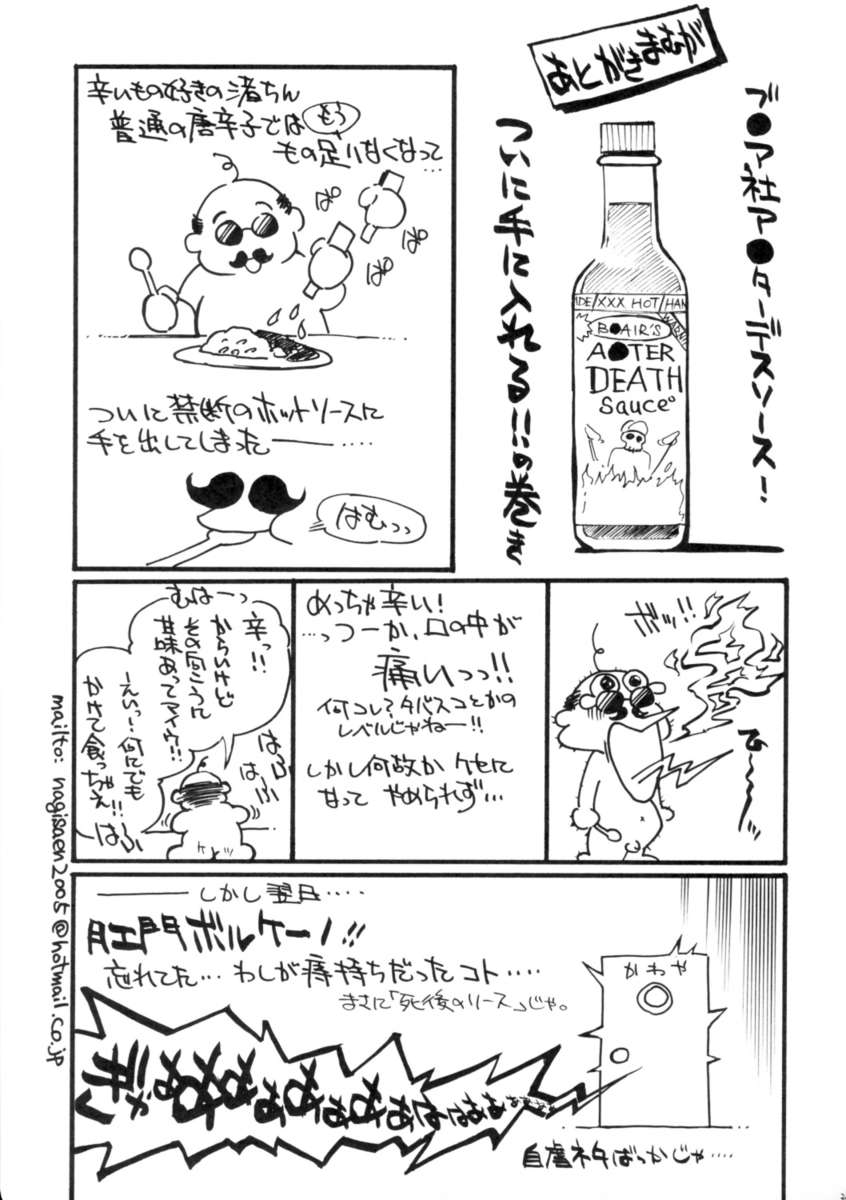 あとがきまむが
ブ●ア社ア●ターデスソース!
ついに手に入れる!!の巻き
XXX HOT
B●AIR'S
A●TER
DEATH
Sauce
辛いもの好きの渚ちん
普通の唐辛子ではもう
もの足りなくなって…
ぱっ
ぱっ
ぱっ
ついに禁断のホットソースに
手を出してしまった――‥‥
はむっっ
ボッ!!
ひ〜〜〜〜ッ
めっちゃ辛い!
…っつーか、口の中が
痛いっっ!!
何コレ?タバスコとかの
レベルじゃねー!!
しかし何故か ケセに
なって やめられず…
むはーっ
辛っ!!
からいけど
その向こうに
甘味あってマイウ!!
ーえいっ!何にでも
かけて食っちゃえ!!
はふ
はふ
はふ
――しかし翌日‥‥
肛門ボルケーノ!!
忘れてた…わしが痔持ちだったコト‥‥
まさに「死後のソース」じゃ。
かわや
自虐ネタばっかじゃ‥‥
mailto: nagisaen2005@hotmail.co.jp